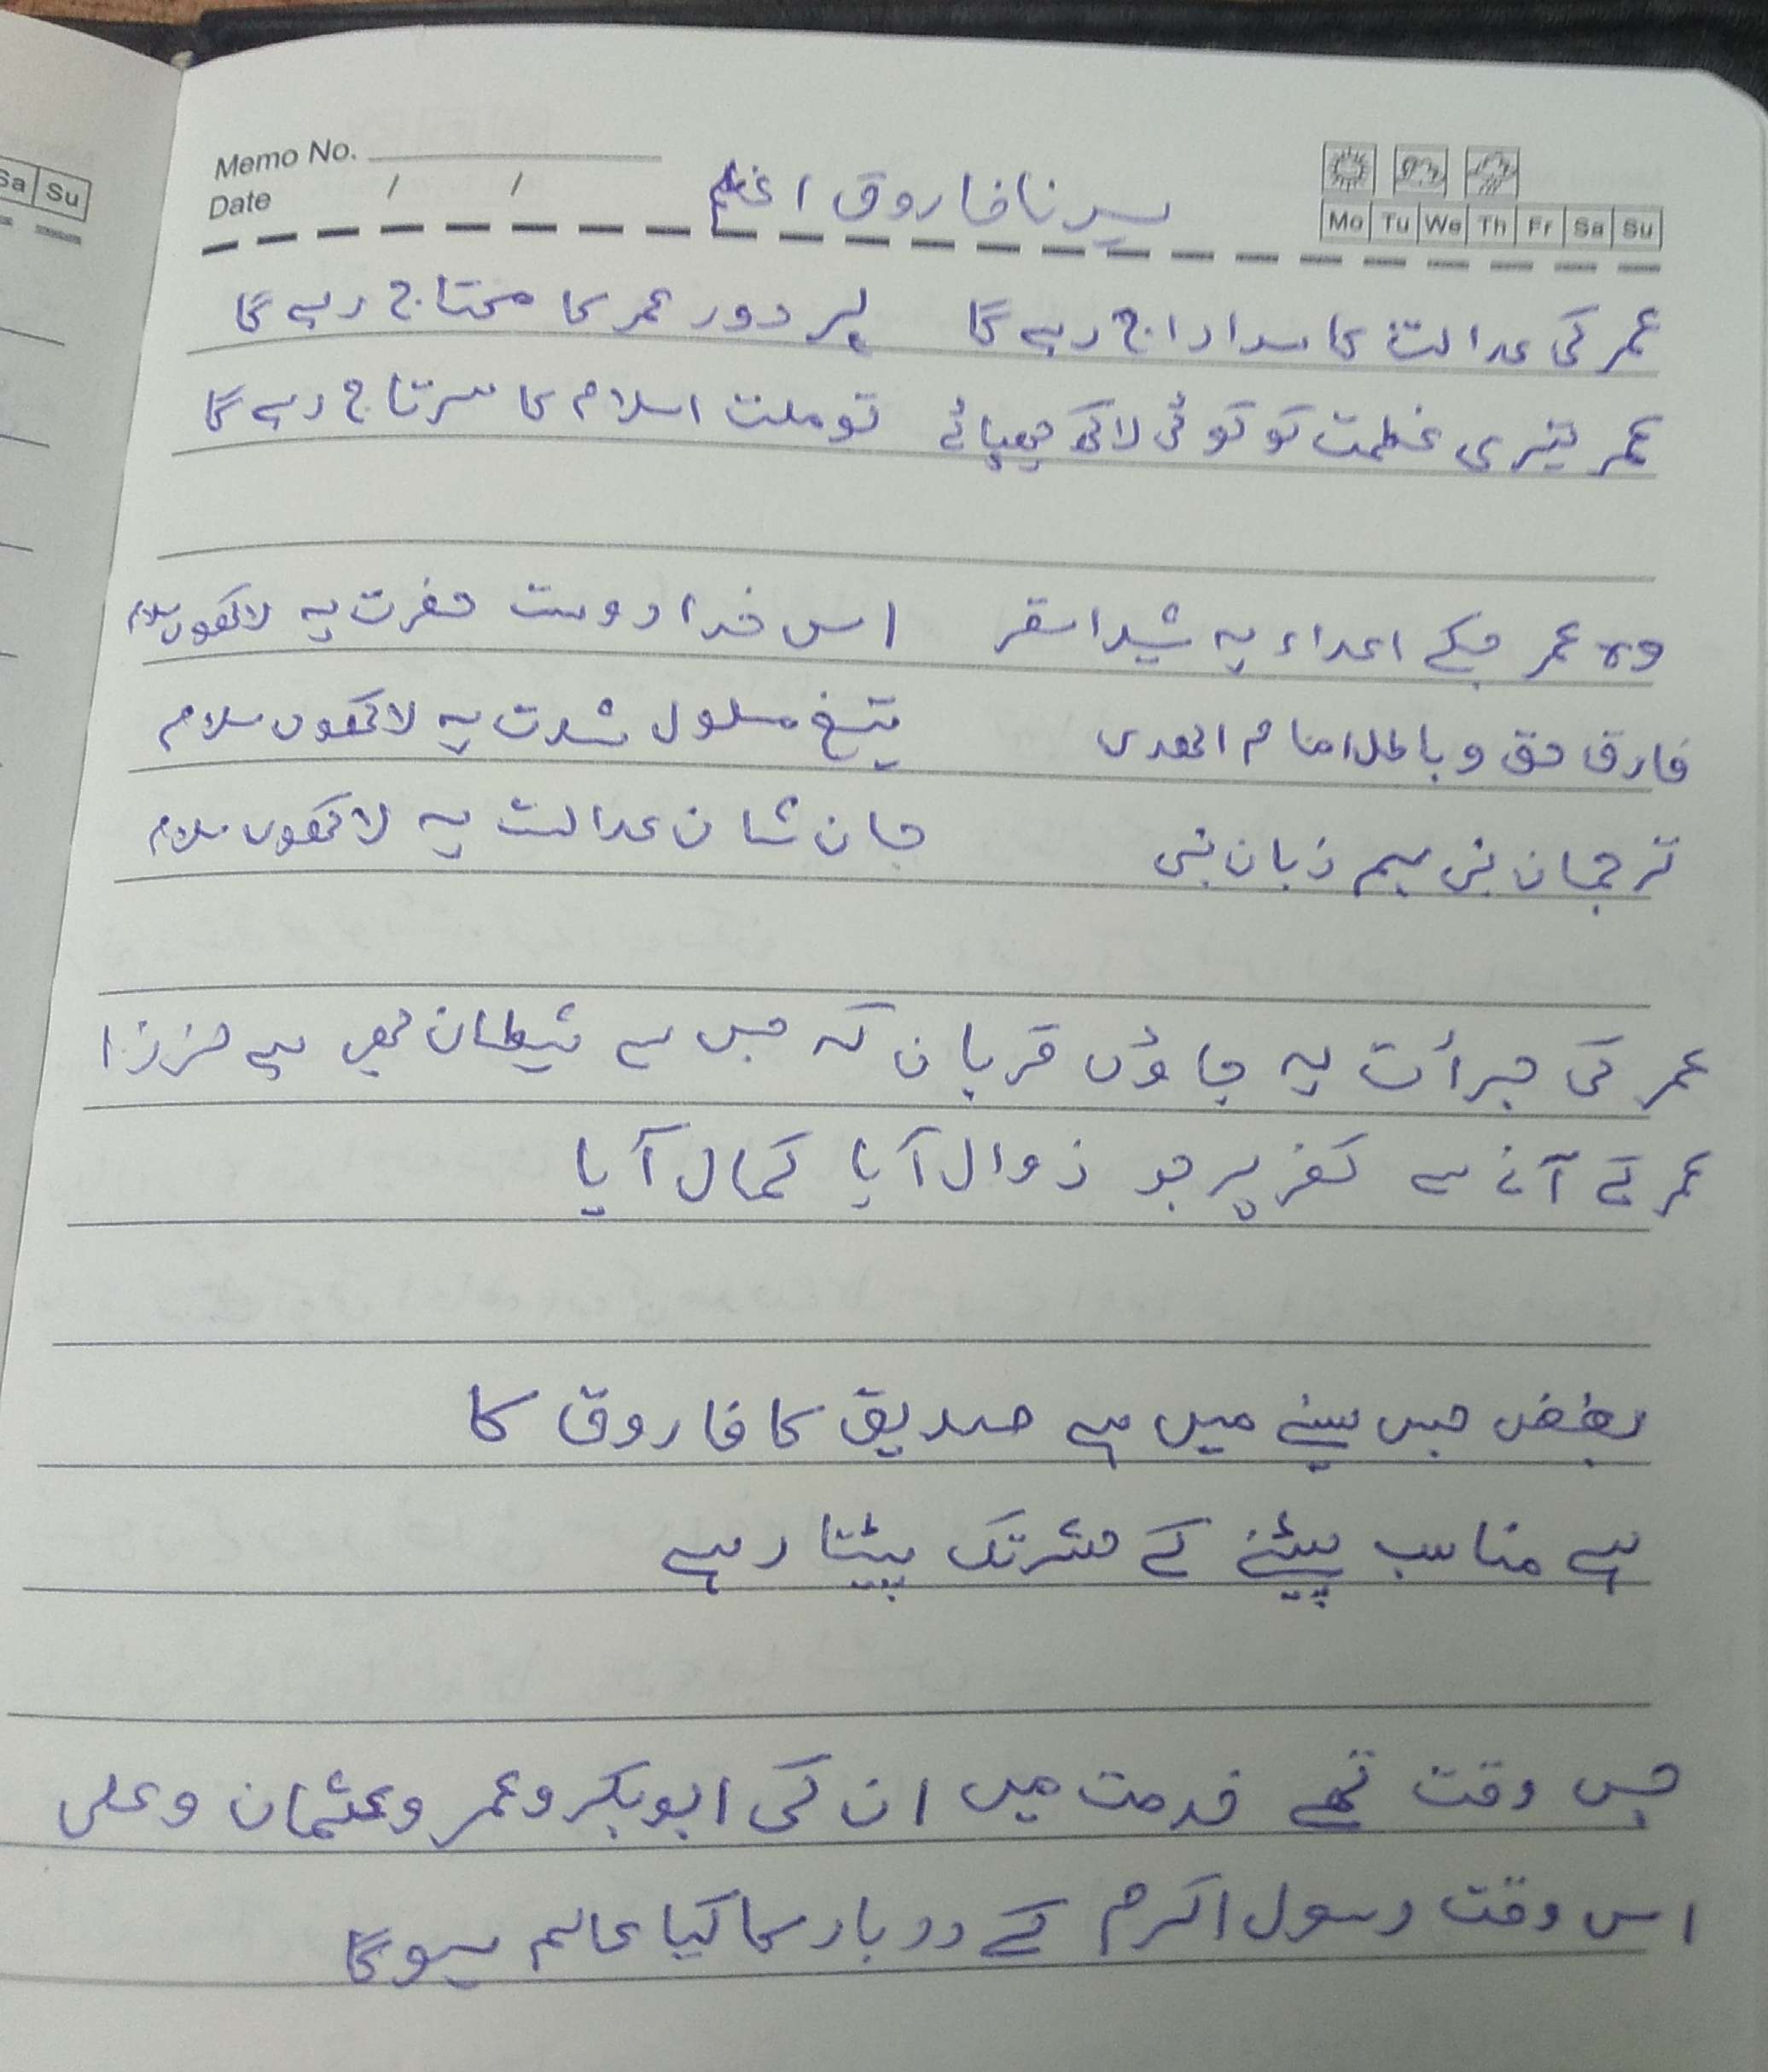 Sa Su
Memo No.
Date / /
سیدنا فاروق اعظم
Mo Tu We Th Fr Sa Su
عمر کی عدالت کا سدا راج رہے گا ہر دور عمر کا محتاج رہے گا
عمر تیری عظمت کو کوئی لاکھ چھپائے تو ملت اسلام کا سرتاج رہے گا
وہ عمر جسکے اعداء پہ شیدا سقر اس خدا دوست حضرت پہ لاکھوں سلام
فارق حق و باطل امام الھدی تیغ مسلول شدت پہ لاکھوں سلام
ترجمان نبی ہم زبان نبی جان شان عدالت پہ لاکھوں سلام
عمر کی جرأت پہ جاؤں قربان کہ جس سے شیطان بھی ہے لرزا
عمر کے آنے سے کفر پر جو زوال آیا کمال آیا
بغض جس سینے میں ہے صدیق کا فاروق کا
ہے مناسب پیٹنے کے حشر تک پیٹتا رہے
جس وقت تھے خدمت میں ان کی ابوبکر و عمر و عثمان و علی
اس وقت رسول اکرم کے دربار کا کیا عالم ہوگا